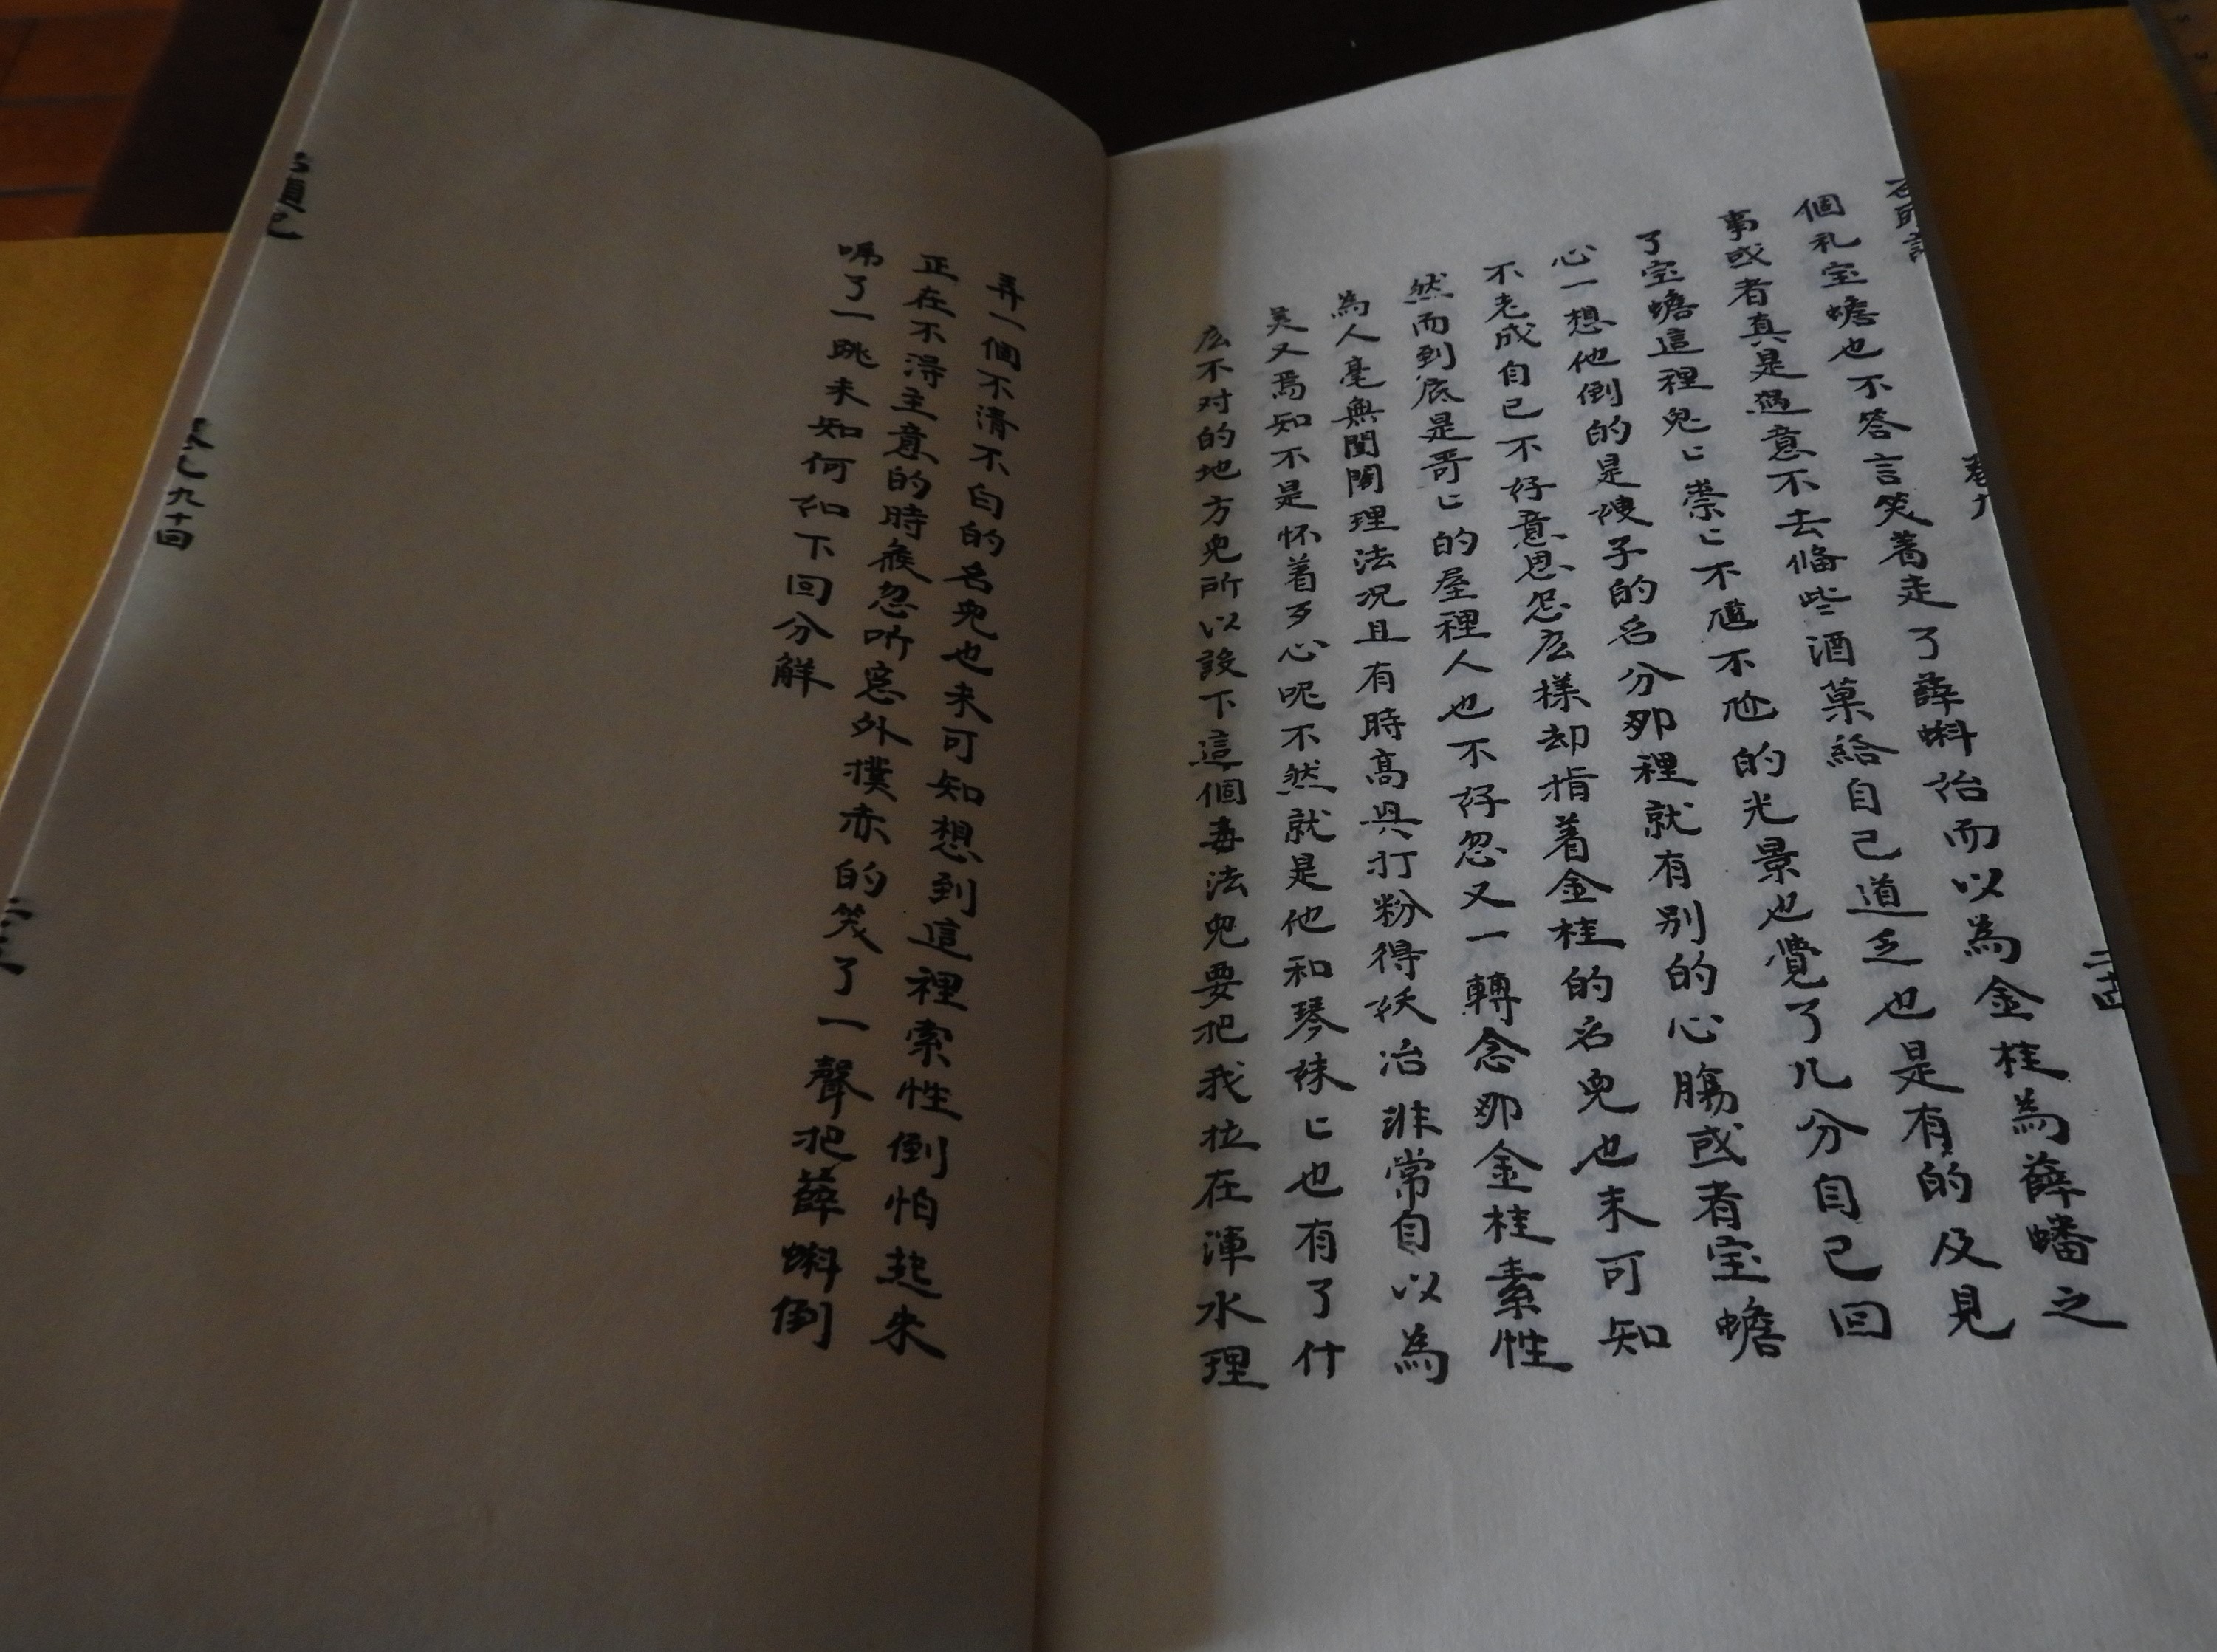 石頭記
卷九
二十四
個礼宝蟾也不答言笑着走了薛蝌始而以為金桂為薛蟠之
事或者真是過意不去俻些酒菓給自己道乏也是有的及見
了宝蟾這裡鬼匕祟匕不尷不尬的光景也覺了几分自己回
心一想他倒的是嫂子的名分那裡就有别的心腸或者宝蟾
不老成自己不好意思怎庅樣却指着金桂的名兒也未可知
然而到底是哥匕的屋裡人也不好忽又一轉念那金桂素性
為人毫無閨閣理法况且有時高興打扮得妖冶非常自以為
美又焉知不是怀着歹心呢不然就是他和琴妹匕也有了什
庅不对的地方兒所以設下這個毒法兒要把我拉在渾水理
弄一個不清不白的名兒也未可知想到這裡索性倒怕起来
正在不得主意的時候忽听窓外撲赤的笑了一聲把薛蝌倒
唬了一跳未知何如下回分解
九十回